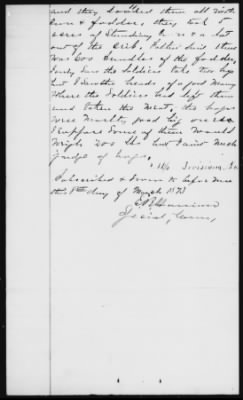 and they loaded them all with
corn & fodder, they took 5
acres of Standing Corn & a lot
out of the Crib. Father Said there
was 600 bundles of the fodder,
I only Saw the Soldiers take two hogs
but I Saw the heads of a good many
Where the Soldiers had left them
and taken the Meat. the hogs
were Mostly good big ones
I suppose Some of them Would
Weigh 200 lbs but I aint Much
Judge of hogs.
Subscribed & Sworn to before me
this 8th day of March 1873
Harrison
Special Com,